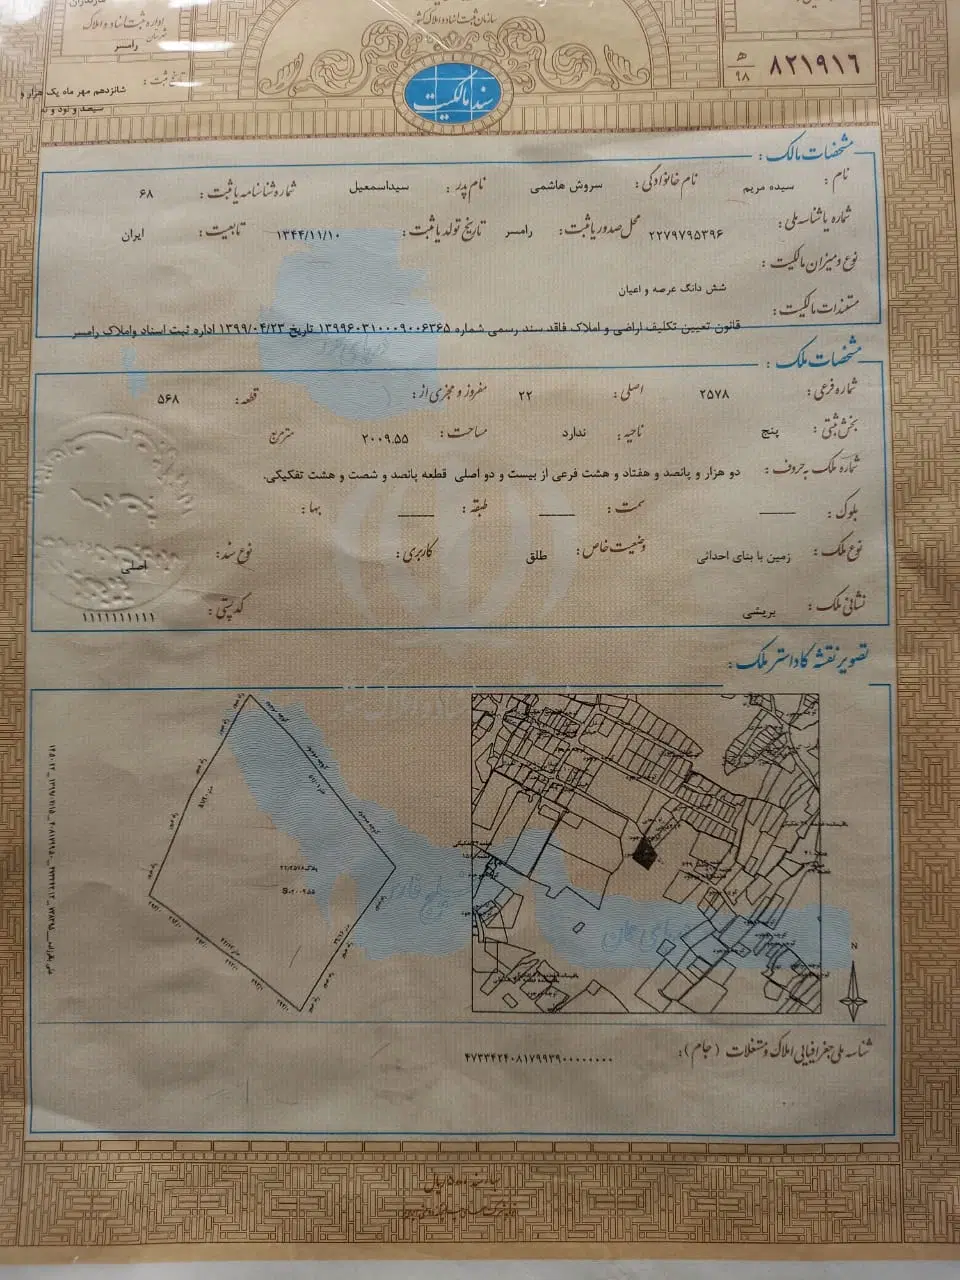 مازندران
سازمان ثبت اسناد و املاک کشور
اداره ثبت اسناد و املاک
شهرستان رامسر
۸۲۱۹۱۶
ه‍
۹۸
سند مالکیت
تاریخ ثبت : شانزدهم مهر ماه یک هزار و
سیصد و نود و نه
مشخصات مالک :
نام : سیده مریم نام خانوادگی : سروش هاشمی نام پدر : سیداسمعیل شماره شناسنامه یا ثبت : ۶۸
شماره یا شناسه ملی : ۲۲۷۹۷۹۵۳۹۶ محل صدور یا ثبت : رامسر تاریخ تولد یا ثبت : ۱۳۴۴/۱۱/۱۰ تابعیت : ایران
نوع و میزان مالکیت :
شش دانگ عرصه و اعیان
مستندات مالکیت :
قانون تعیین تکلیف اراضی و املاک فاقد سند رسمی شماره ۱۳۹۹۶۰۳۱۰۰۰۹۰۰۶۳۶۵ تاریخ ۱۳۹۹/۰۴/۲۳ اداره ثبت اسناد واملاک رامسر
دریای خزر
مشخصات ملک :
شماره فرعی : ۲۵۷۸ اصلی : ۲۲ مفروز و مجزی از : قطعه : ۵۶۸
بخش ثبتی : پنج ناحیه : ندارد مساحت : ۲۰۰۹.۵۵ مترمربع
شماره ملک به حروف : دو هزار و پانصد و هفتاد و هشت فرعی از بیست و دو اصلی قطعه پانصد و شصت و هشت تفکیکی.
بلوک : سمت : طبقه : بها :
نوع ملک : زمین با بنای احداثی وضعیت خاص : طلق کاربری : نوع سند : اصلی
نشانی ملک : بریشی کد پستی : ۱۱۱۱۱۱۱۱۱۱
تصویر نقشه کاداستر ملک :
پلاک ۲۲/۲۵۷۸
S=۲۰۰۹.۵۵
خلیج فارس
دریای عمان
N
شناسه ملی جغرافیایی املاک و مستغلات (جام) : ۴۷۳۳۴۲۴۰۸۱۷۹۹۳۹۰۰۰۰۰۰۰۰